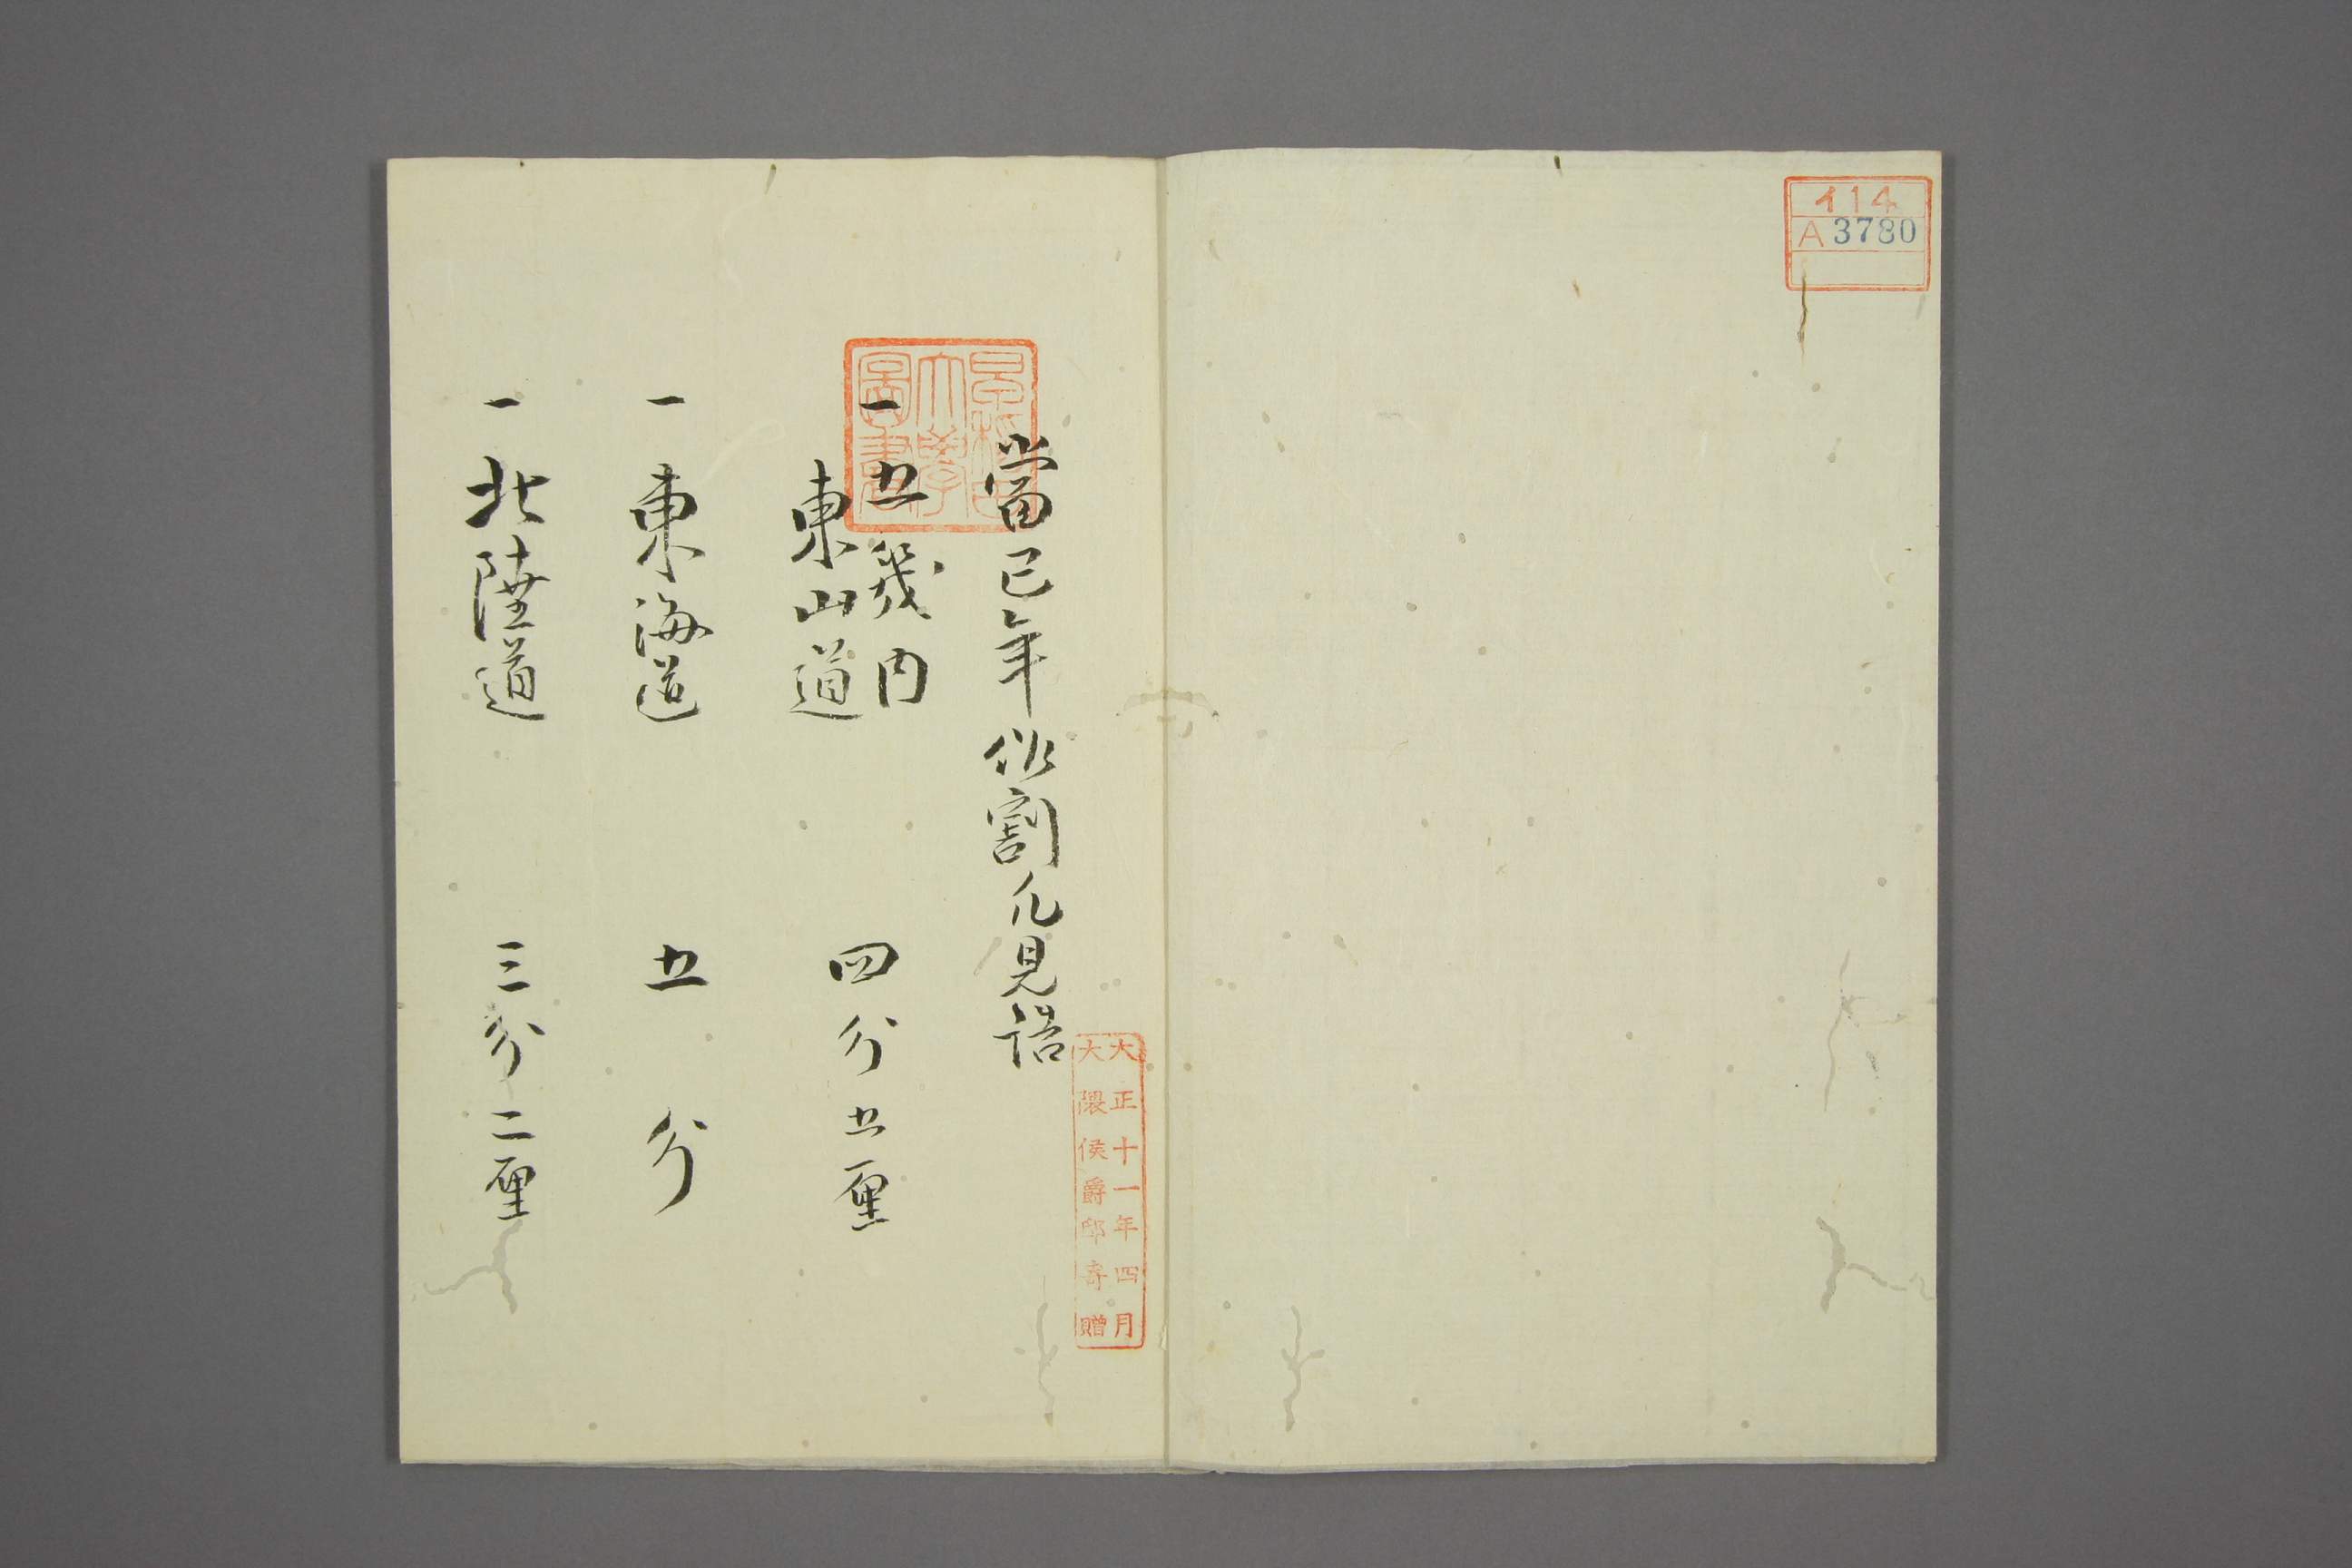 イ14
A 3780
大正十一年四月
大隈侯爵邸寄贈
早稲田
大學
圖書
當巳年作割凡見詰
一五幾内
東山道
四分五厘
一東海道 五分
一北陸道 三分二厘